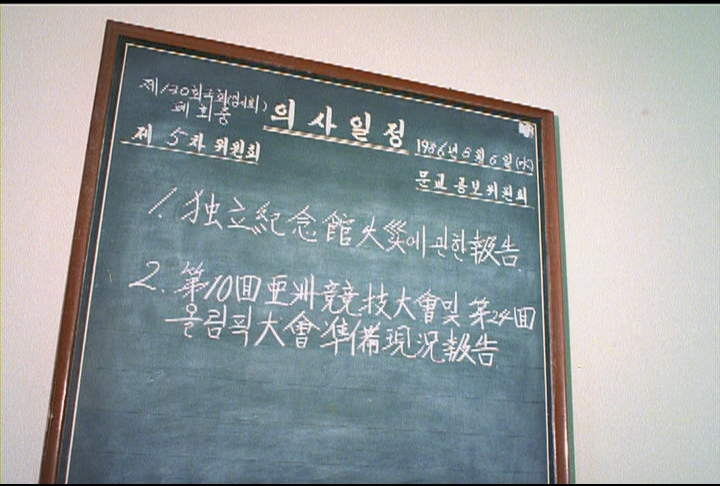 제130회국회(임시회)
폐회중
의사일정
제 5차 위원회
1986년 8월 6일(水)
문교공보위원회
1. 独立紀念館火災에 관한 報告
2. 第10回 亜洲競技大會 및 第24回
올림픽大會 準備現況報告